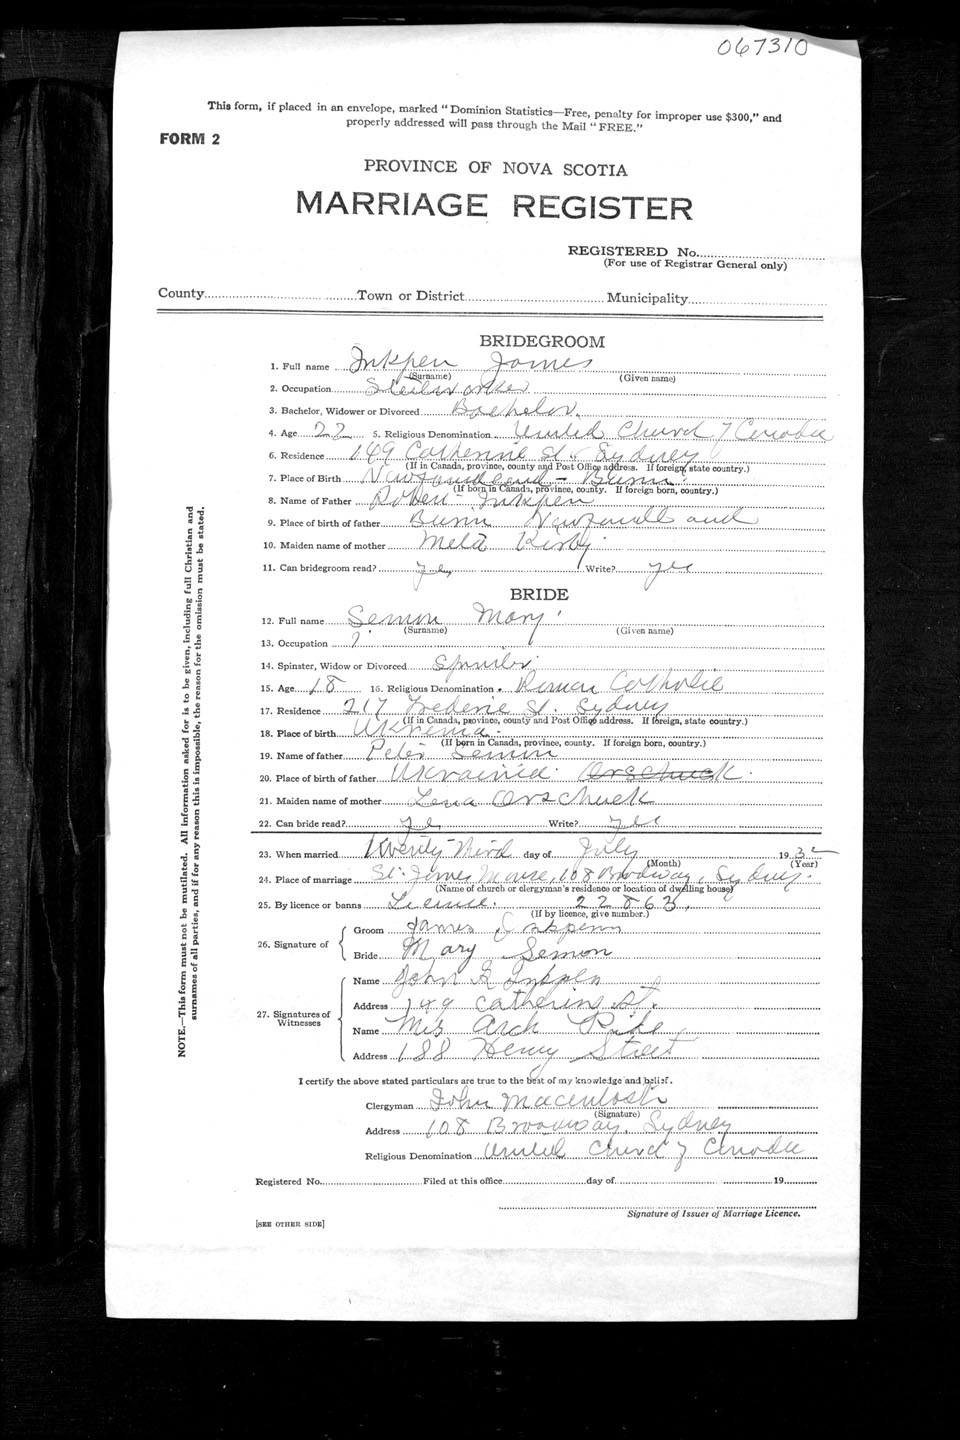 067310
This form, if placed in an envelope, marked "Dominion Statistics—Free, penalty for improper use $300," and
properly addressed will pass through the Mail "FREE."
FORM 2
PROVINCE OF NOVA SCOTIA
MARRIAGE REGISTER
REGISTERED No.
(For use of Registrar General only)
County Town or District Municipality
BRIDEGROOM
1. Full name Inkpen James
(Surname) (Given name)
2. Occupation
3. Bachelor, Widower or Divorced Bachelor.
4. Age 22 5. Religious Denomination United Church of Canada
6. Residence 149 Catherine St. Sydney
(If in Canada, province, county and Post Office address. If foreign, state country.)
7. Place of Birth Newfoundland - Burin
(If born in Canada, province, county. If foreign born, country.)
8. Name of Father Robert Inkpen
9. Place of birth of father Burin Newfoundland
10. Maiden name of mother Meta Kirby
11. Can bridegroom read? yes Write? yes
BRIDE
12. Full name Semon Mary
(Surname) (Given name)
13. Occupation
14. Spinster, Widow or Divorced Spinster
15. Age 18 16. Religious Denomination Roman Catholic
17. Residence 217 Frederic St. Sydney
(If in Canada, province, county and Post Office address. If foreign, state country.)
18. Place of birth Ukrania
(If born in Canada, province, county. If foreign born, country.)
19. Name of father Peter Semon
20. Place of birth of father Ukrainia. Orschuck.
21. Maiden name of mother Lena Orschuck
22. Can bride read? yes Write? yes
23. When married Twenty third day of July 1932
(Month) (Year)
24. Place of marriage St. James Manse, 108 Broadway, Sydney.
(Name of church or clergyman's residence or location of dwelling house)
25. By licence or banns License. 22863.
(If by licence, give number.)
26. Signature of
Groom James Inkpenn
Bride Mary Semon
27. Signatures of Witnesses
Name John G Inkpen
Address 149 Catherine St.
Name Mrs Arch Pike
Address 188 Henry Street
I certify the above stated particulars are true to the best of my knowledge and belief.
Clergyman John Macintosh
(Signature)
Address 108 Broadway, Sydney
Religious Denomination United Church of Canada
Registered No. Filed at this office day of 19
Signature of Issuer of Marriage Licence.
[SEE OTHER SIDE]
NOTE.—This form must not be mutilated. All information asked for is to be given, including full Christian and
surnames of all parties, and if for any reason this is impossible, the reason for the omission must be stated.